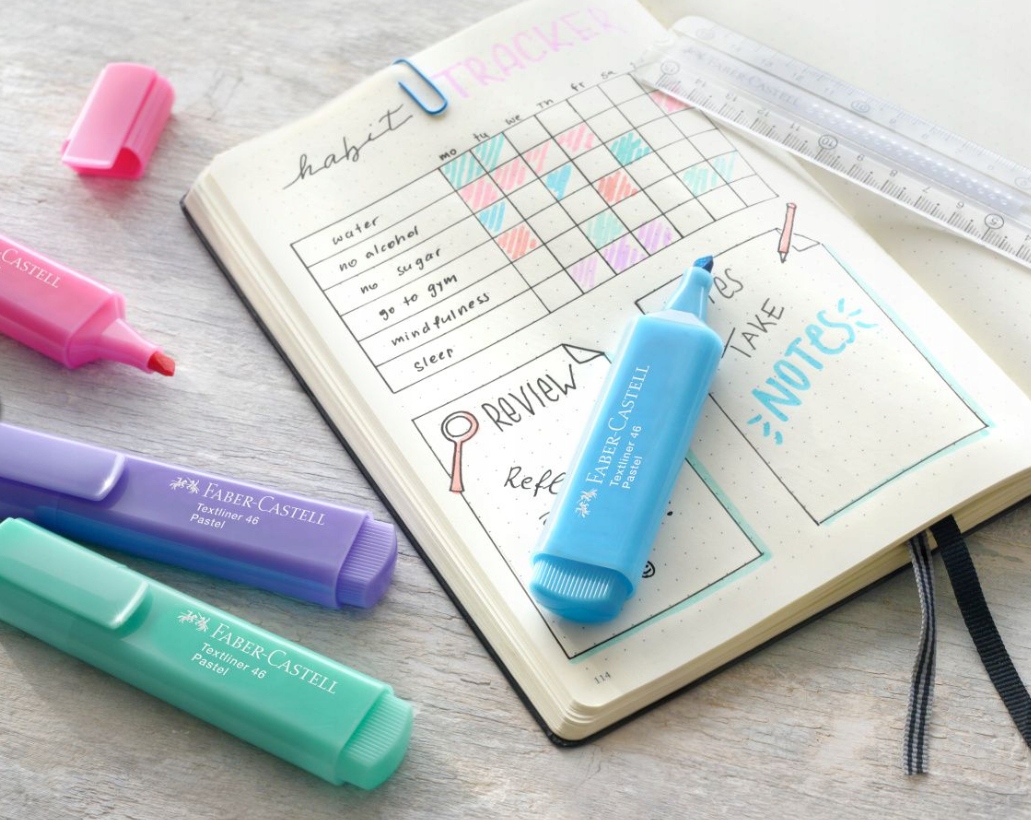 habit TRACKER
mo tu we th fr sa
water
no alcohol
no sugar
go to gym
mindfulness
sleep
REVIEW
TAKE
NOTES
114
FABER-CASTELL
Textliner 46
Pastel
FABER-CASTELL
Textliner 46
Pastel
FABER-CASTELL
Textliner 46
Pastel
FABER-CASTELL